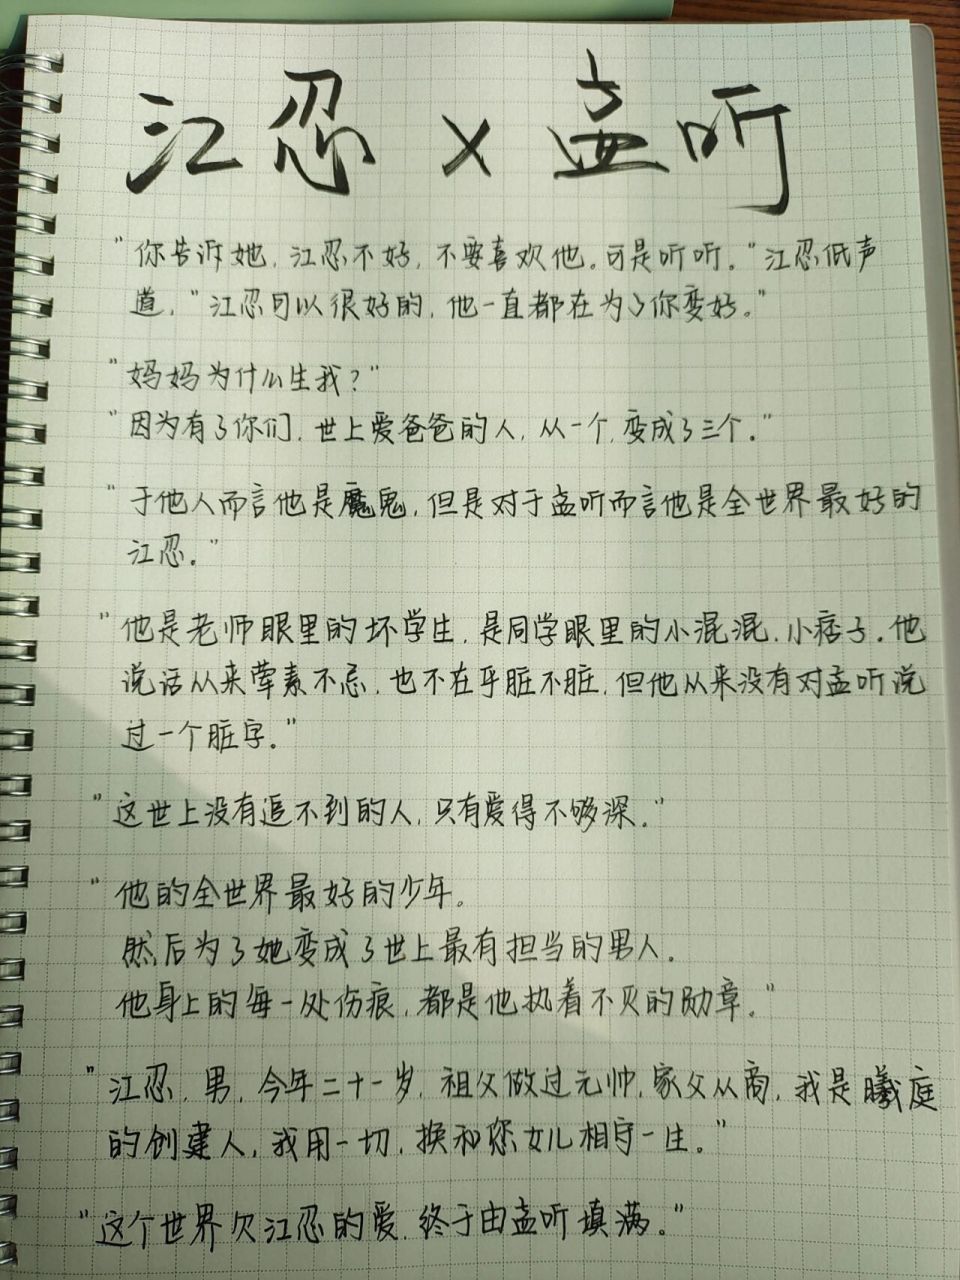 江忍 × 孟听
"你告诉她，江忍不好，不要喜欢他。可是听听。"江忍低声
道，"江忍可以很好的，他一直都在为了你变好。"
"妈妈为什么生我？"
"因为有了你们，世上爱爸爸的人，从一个，变成了三个。"
"于他人而言他是魔鬼，但是对于孟听而言他是全世界最好的
江忍。"
"他是老师眼里的坏学生，是同学眼里的小混混，小痞子。他
说话从来荤素不忌，也不在乎脏不脏，但他从来没有对孟听说
过一个脏字。"
"这世上没有追不到的人，只有爱得不够深。"
"他的全世界最好的少年。
然后为了她变成了世上最有担当的男人。
他身上的每一处伤痕，都是他执着不灭的勋章。"
"江忍，男，今年二十一岁，祖父做过元帅，家父从商，我是曦庭
的创建人，我用一切，换和您女儿相守一生。"
"这个世界欠江忍的爱，终于由孟听填满。"